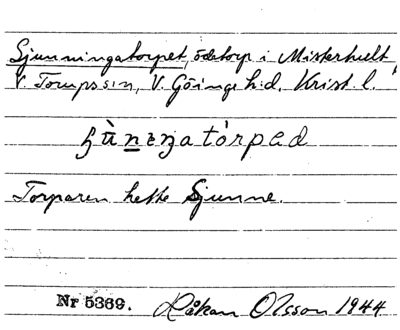 Sjunningatorpet, ödetorp i Misterhult
V. Torupssin, V. Göinge h:d, Krist. l.
ɧùnɪŋatòrpəd
Torparen hette Sjunne.
Nr 5369. Håkan Olsson 1944